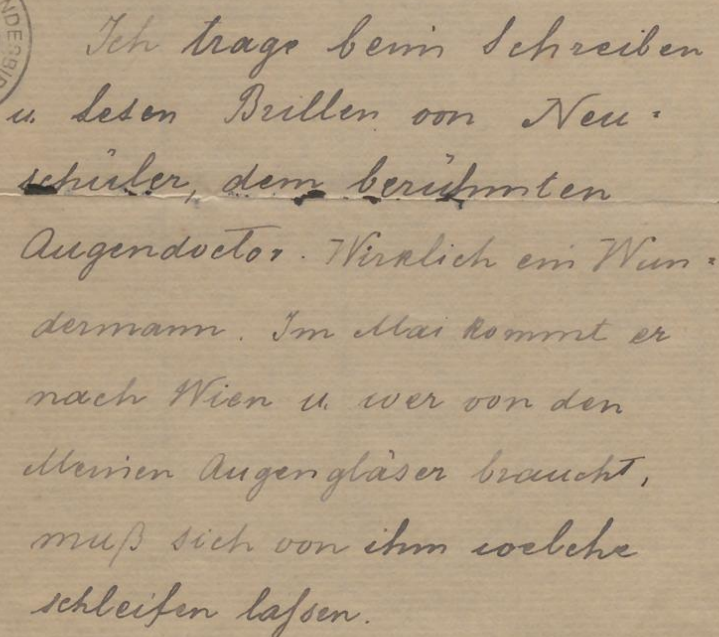 NDESBI
Ich trage beim Schreiben
u. Lesen Brillen von Neu-
schüler, dem berühmten
Augendoctor. Wirklich ein Wun-
dermann. Im Mai kommt er
nach Wien u. wer von den
Meinen Augengläser braucht,
muß sich von ihm welche
schleifen laſsen.